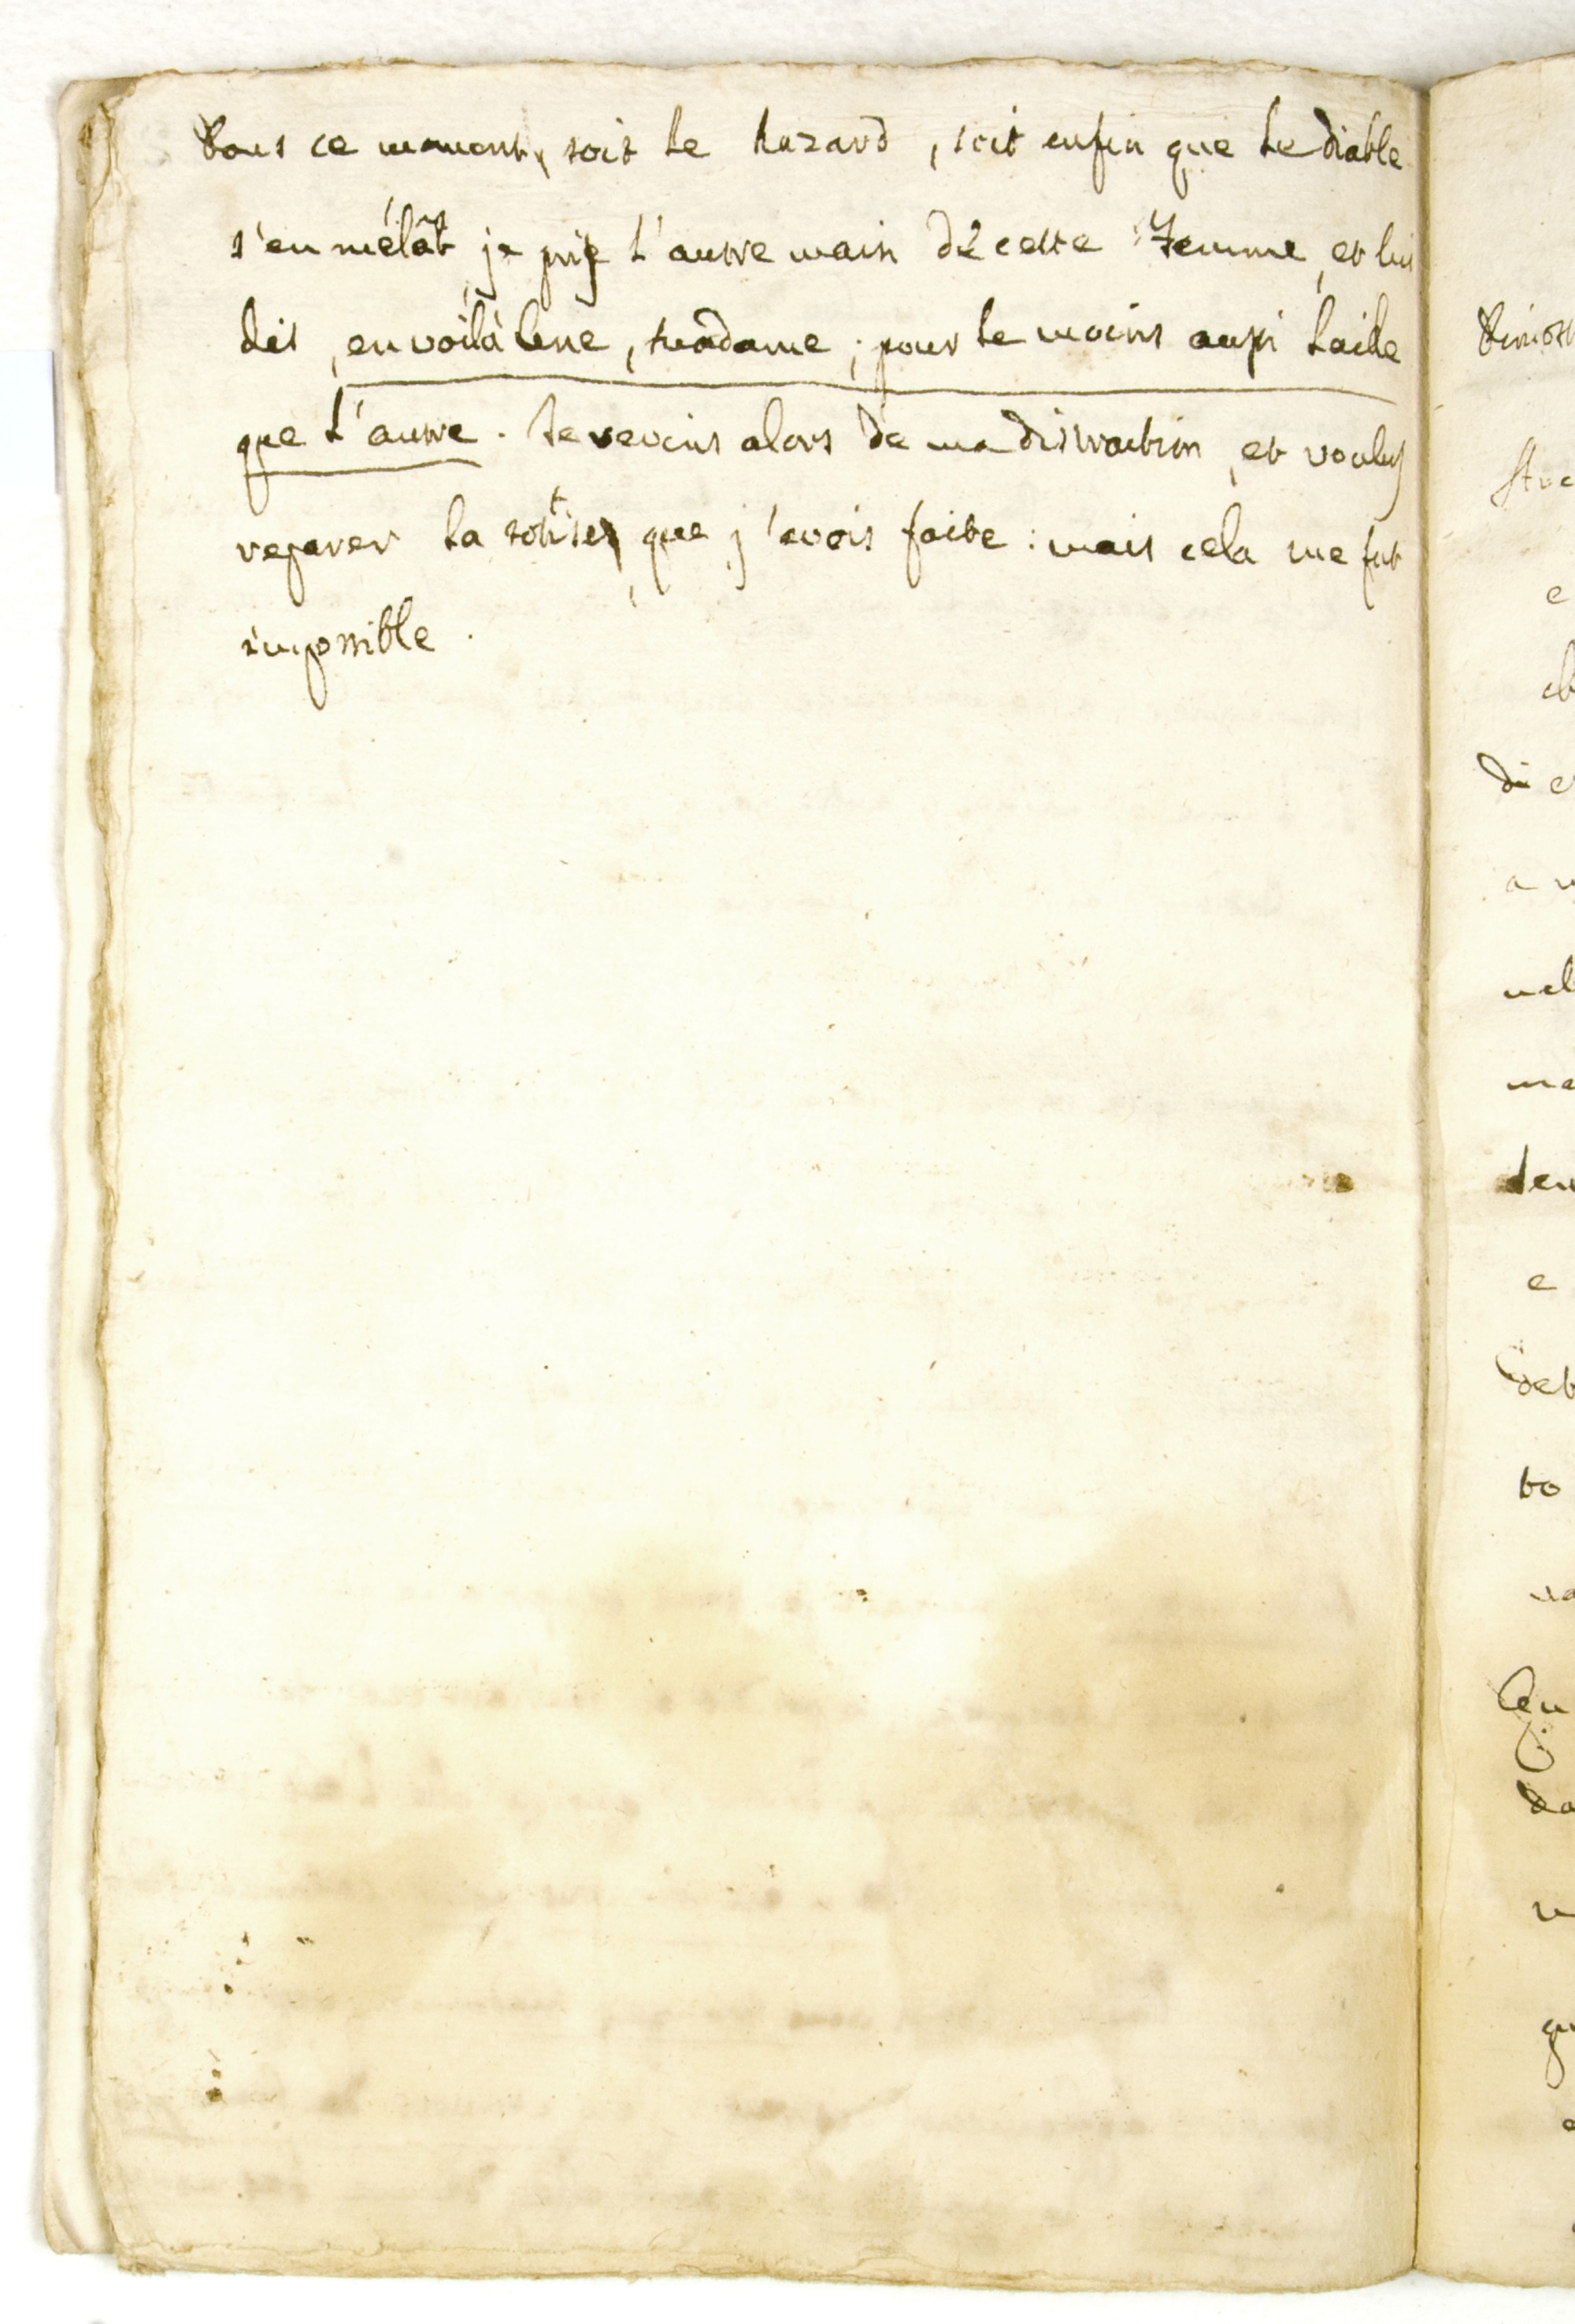 Dans ce moment, soit le hazard, soit enfin que le diable
s'en mélât, je pris l'autre main de cette Femme, et lui
dis, en voilà une, madame; pour le moins aussi laide
que l'autre. Je revins alors de ma distraction, et voulus
reparer la sottise, que j'avois faite : mais cela me fut
impossible.